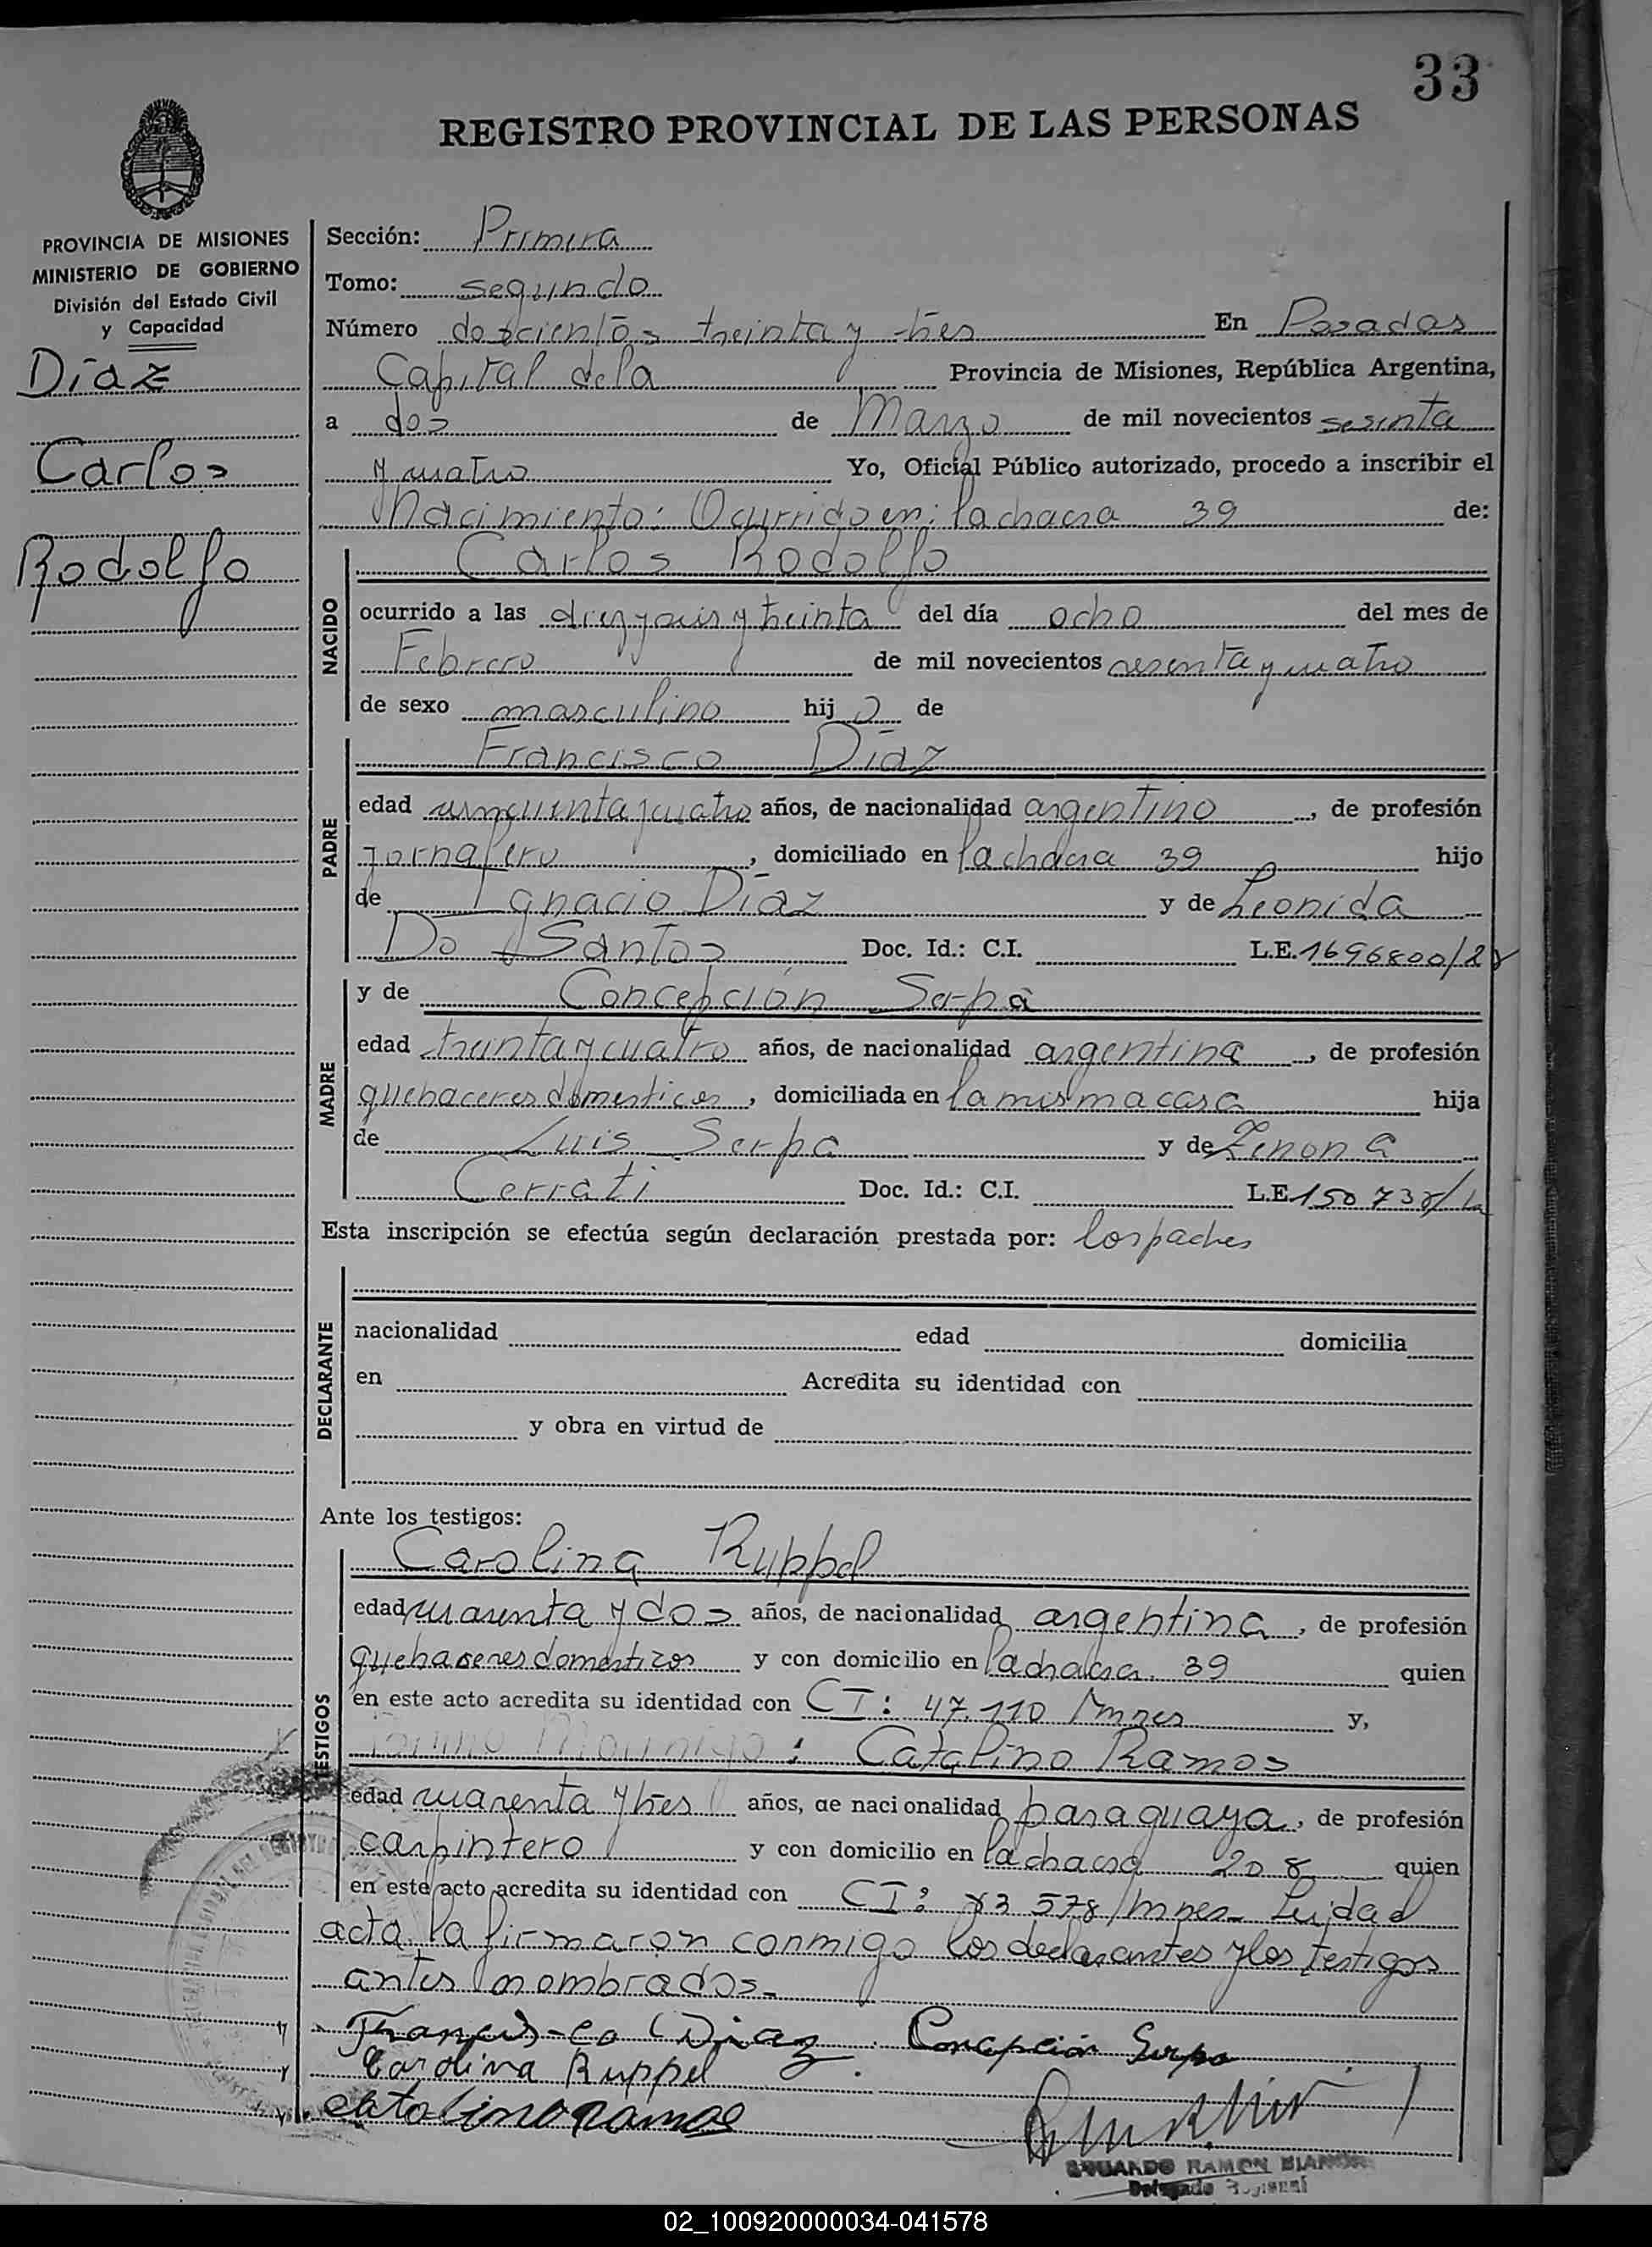 33
REGISTRO PROVINCIAL DE LAS PERSONAS
PROVINCIA DE MISIONES
MINISTERIO DE GOBIERNO
División del Estado Civil
y Capacidad
Díaz
Carlos
Rodolfo
Sección: Primera
Tomo: segundo
Número doscientos treinta y tres En Posadas
Capital de la Provincia de Misiones, República Argentina,
a dos de Marzo de mil novecientos sesenta
y cuatro Yo, Oficial Público autorizado, procedo a inscribir el
Nacimiento: Ocurrido en: la chacra 39 de:
NACIDO
Carlos Rodolfo
ocurrido a las diez y seis y treinta del día ocho del mes de
Febrero de mil novecientos sesenta y cuatro
de sexo masculino hijo de
PADRE
Francisco Díaz
edad cincuenta y cuatro años, de nacionalidad argentino, de profesión
jornalero, domiciliado en la chacra 39 hijo
de Ignacio Díaz y de Leonida
Do Santos Doc. Id.: C.I. L.E. 1696800/
MADRE
y de Concepción Serpa
edad treinta y cuatro años, de nacionalidad argentina, de profesión
quehaceres domesticos, domiciliada en la misma casa hija
de Luis Serpa y de Zenona
Cerrati Doc. Id.: C.I. L.E
Esta inscripción se efectúa según declaración prestada por: los padres
DECLARANTE
nacionalidad edad domicilia
en Acredita su identidad con
y obra en virtud de
Ante los testigos:
TESTIGOS
Carolina Ruppel
edad cuarenta y dos años, de nacionalidad argentina, de profesión
quehaceres domesticos y con domicilio en la chacra 39 quien
en este acto acredita su identidad con CI: 47.110 Mnes y,
: Catalino Ramos
edad cuarenta y tres años, de nacionalidad paraguaya, de profesión
carpintero y con domicilio en la chacra 208 quien
en este acto acredita su identidad con CI: 578/Mnes- Leida el
acta la firmaron conmigo los declarantes y los testigos
antes nombrados.-
Francis-co Diaz Concepción Serpa
Carolina Ruppel
catalino ramos
EDUARDO RAMON
Delegado Regional
02_100920000034-041578